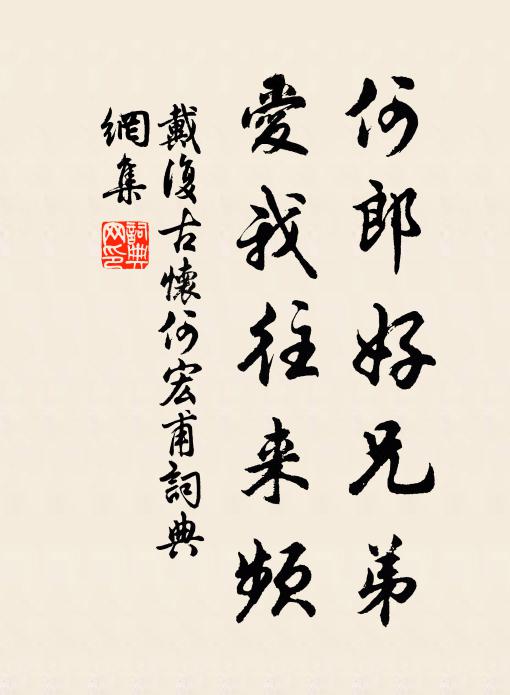 何郎好兄弟
愛我往来頻
戴復古懷何宏甫詞典
網集
詞典
网印